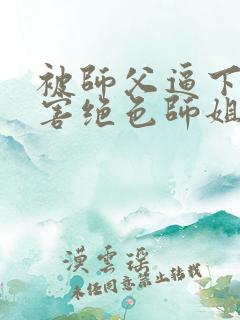 被師父逼下
害绝色師姐
漠雲瑶
未经同意禁止转载